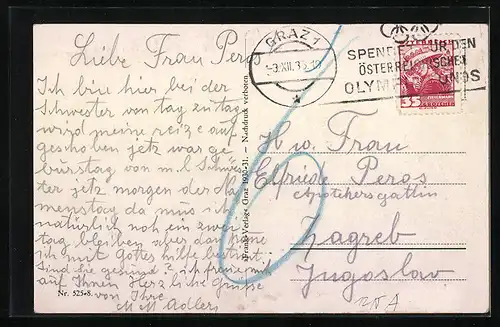 Liebe Frau Peros
Ich bin hier bei der
Schwester von tag zu tag
wird meine reize auf-
geschoben jetz war ge
burstag von m. l. Schwes
ter jetz morgen der da
menstag da mus ich
natürlich noch ein zwei
tag bleiben aber dan
ich mit Gottes hilfe bestimt.
Sind Sie gesund? ich freue mich
auf Ihnen Herzliche Grüsse
von Ihre
Adler
Nr. 525-8.
Frank-Verlag, Graz 1930-31. — Nachdruck verboten
GRAZ 1
-3.XII.35
SPENDET FÜR DEN
ÖSTERREICHISCHEN
OLYMPIAFONDS
35
H. w. Frau
Elfriede Peros
Apothekersgattin
Zagreb
Jugoslav